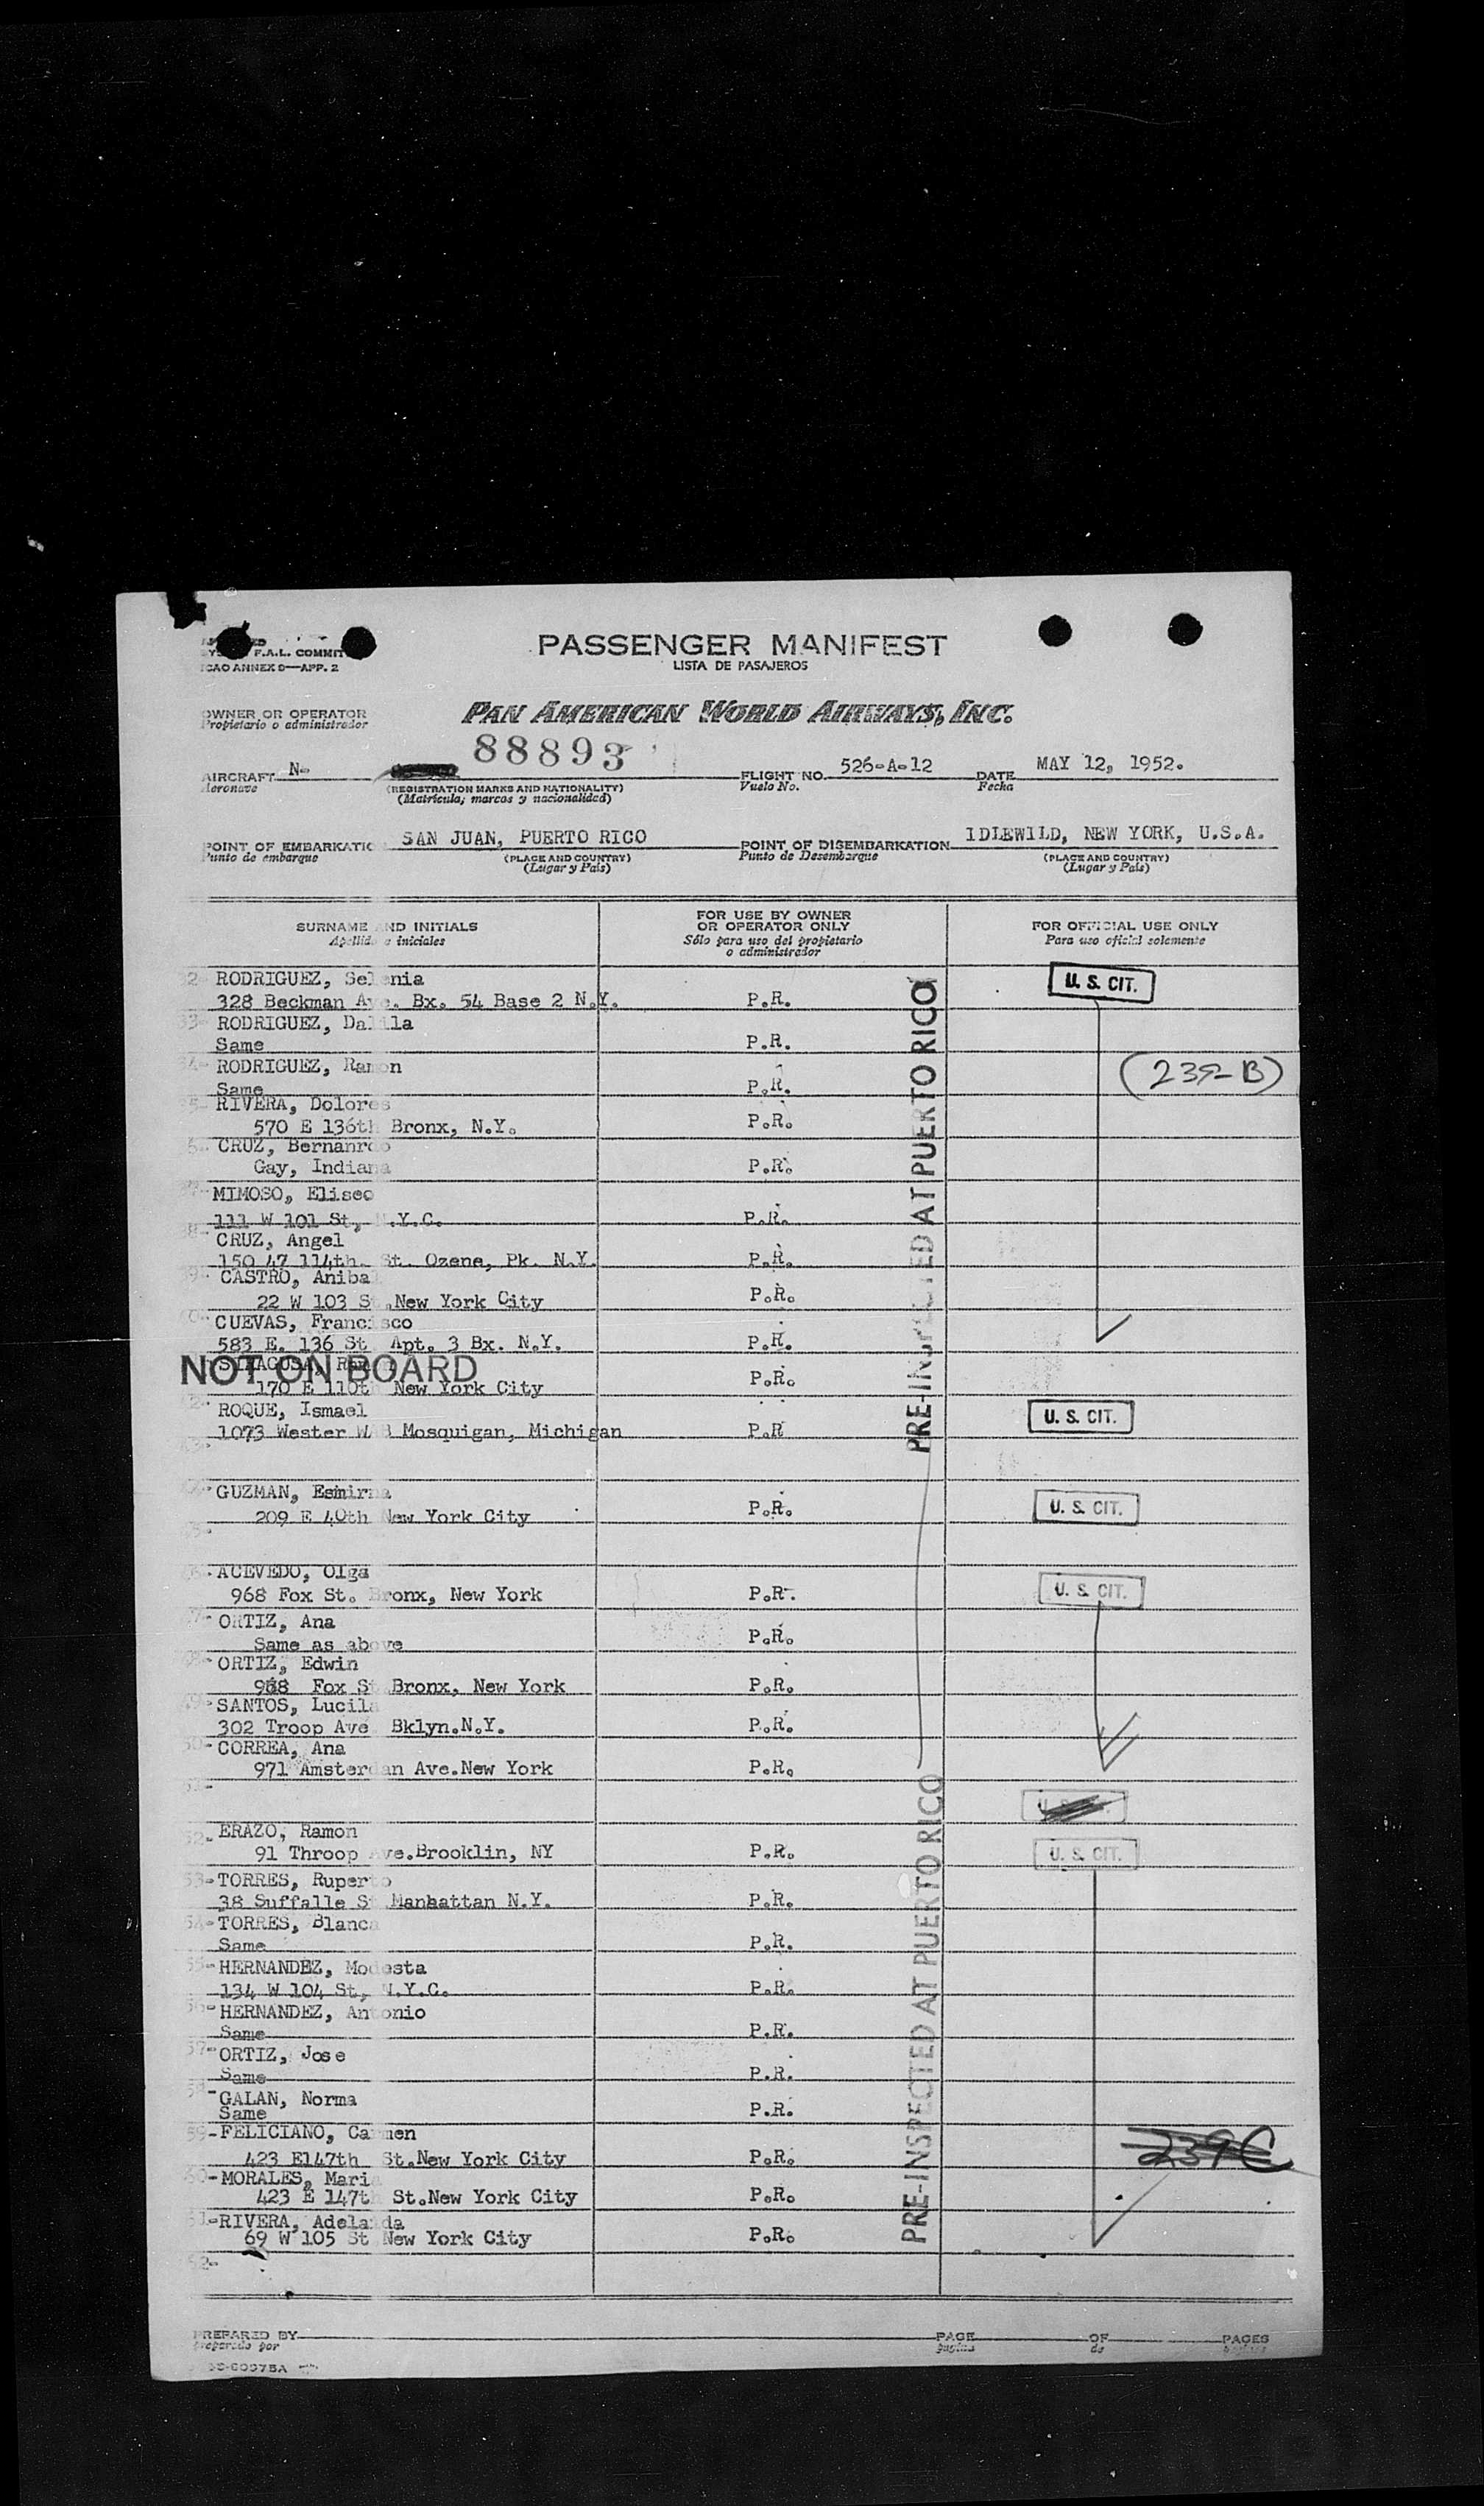 F.A.L. COMMIT
ICAO ANNEX 9—APP. 2
PASSENGER MANIFEST
LISTA DE PASAJEROS
OWNER OR OPERATOR
Propietario o administrador
PAN AMERICAN WORLD AIRWAYS, INC.
88893
AIRCRAFT N-
Aeronave
(REGISTRATION MARKS AND NATIONALITY)
(Matrícula, marcas y nacionalidad)
FLIGHT NO. 526-A-12
Vuelo No.
DATE MAY 12, 1952.
Fecha
POINT OF EMBARKATIO SAN JUAN, PUERTO RICO
Punto de embarque
(PLACE AND COUNTRY)
(Lugar y País)
POINT OF DISEMBARKATION IDLEWILD, NEW YORK, U.S.A.
Punto de Desembarque
(PLACE AND COUNTRY)
(Lugar y País)
SURNAME AND INITIALS
Apellido e iniciales
FOR USE BY OWNER
OR OPERATOR ONLY
Sólo para uso del propietario
o administrador
FOR OFFICIAL USE ONLY
Para uso oficial solamente
RODRIGUEZ, Selenia
328 Beckman Ave. Bx. 54 Base 2 N.Y. P.R. U. S. CIT.
RODRIGUEZ, Dalila
Same P.R.
RODRIGUEZ, Ramon
Same P.R. (239-B)
RIVERA, Dolores
570 E 136th Bronx, N.Y. P.R.
CRUZ, Bernanrdo
Gay, Indiana P.R.
MIMOSO, Eliseo
111 W 101 St, N.Y.C. P.R.
CRUZ, Angel
150 47 114th. St. Ozene, Pk. N.Y. P.R.
CASTRO, Aniba
22 W 103 St.New York City P.R.
CUEVAS, Francisco
583 E. 136 St Apt. 3 Bx. N.Y. P.R.
NOT ON BOARD
SIRAGUSA,
170 E 110th New York City P.R.
ROQUE, Ismael
1073 Wester Mosquigan, Michigan P.R U. S. CIT.
GUZMAN, Esmirna
209 E 40th New York City P.R. U. S. CIT.
ACEVEDO, Olga
968 Fox St. Bronx, New York P.R. U. S. CIT.
ORTIZ, Ana
Same as above P.R.
ORTIZ, Edwin
968 Fox St Bronx, New York P.R.
SANTOS, Lucila
302 Troop Ave Bklyn.N.Y. P.R.
CORREA, Ana
971 Amsterdan Ave.New York P.R.
ERAZO, Ramon
91 Throop Ave.Brooklin, NY P.R. U. S. CIT.
53- TORRES, Ruperto
38 Suffalle St Manhattan N.Y. P.R.
54- TORRES, Blanca
Same P.R.
55- HERNANDEZ, Modesta
134 W 104 St, N.Y.C. P.R.
56- HERNANDEZ, Antonio
Same P.R.
57- ORTIZ, Jose
Same P.R.
58- GALAN, Norma
Same P.R.
59- FELICIANO, Carmen
423 E147th St.New York City P.R. 239C
60- MORALES, Maria
423 E 147th St.New York City P.R.
61- RIVERA, Adelaida
69 W 105 St New York City P.R.
62-
PRE-INSPECTED AT PUERTO RICO
PRE-INSPECTED AT PUERTO RICO
PREPARED BY
preparado por
PAGE
pagina
OF
de
PAGES